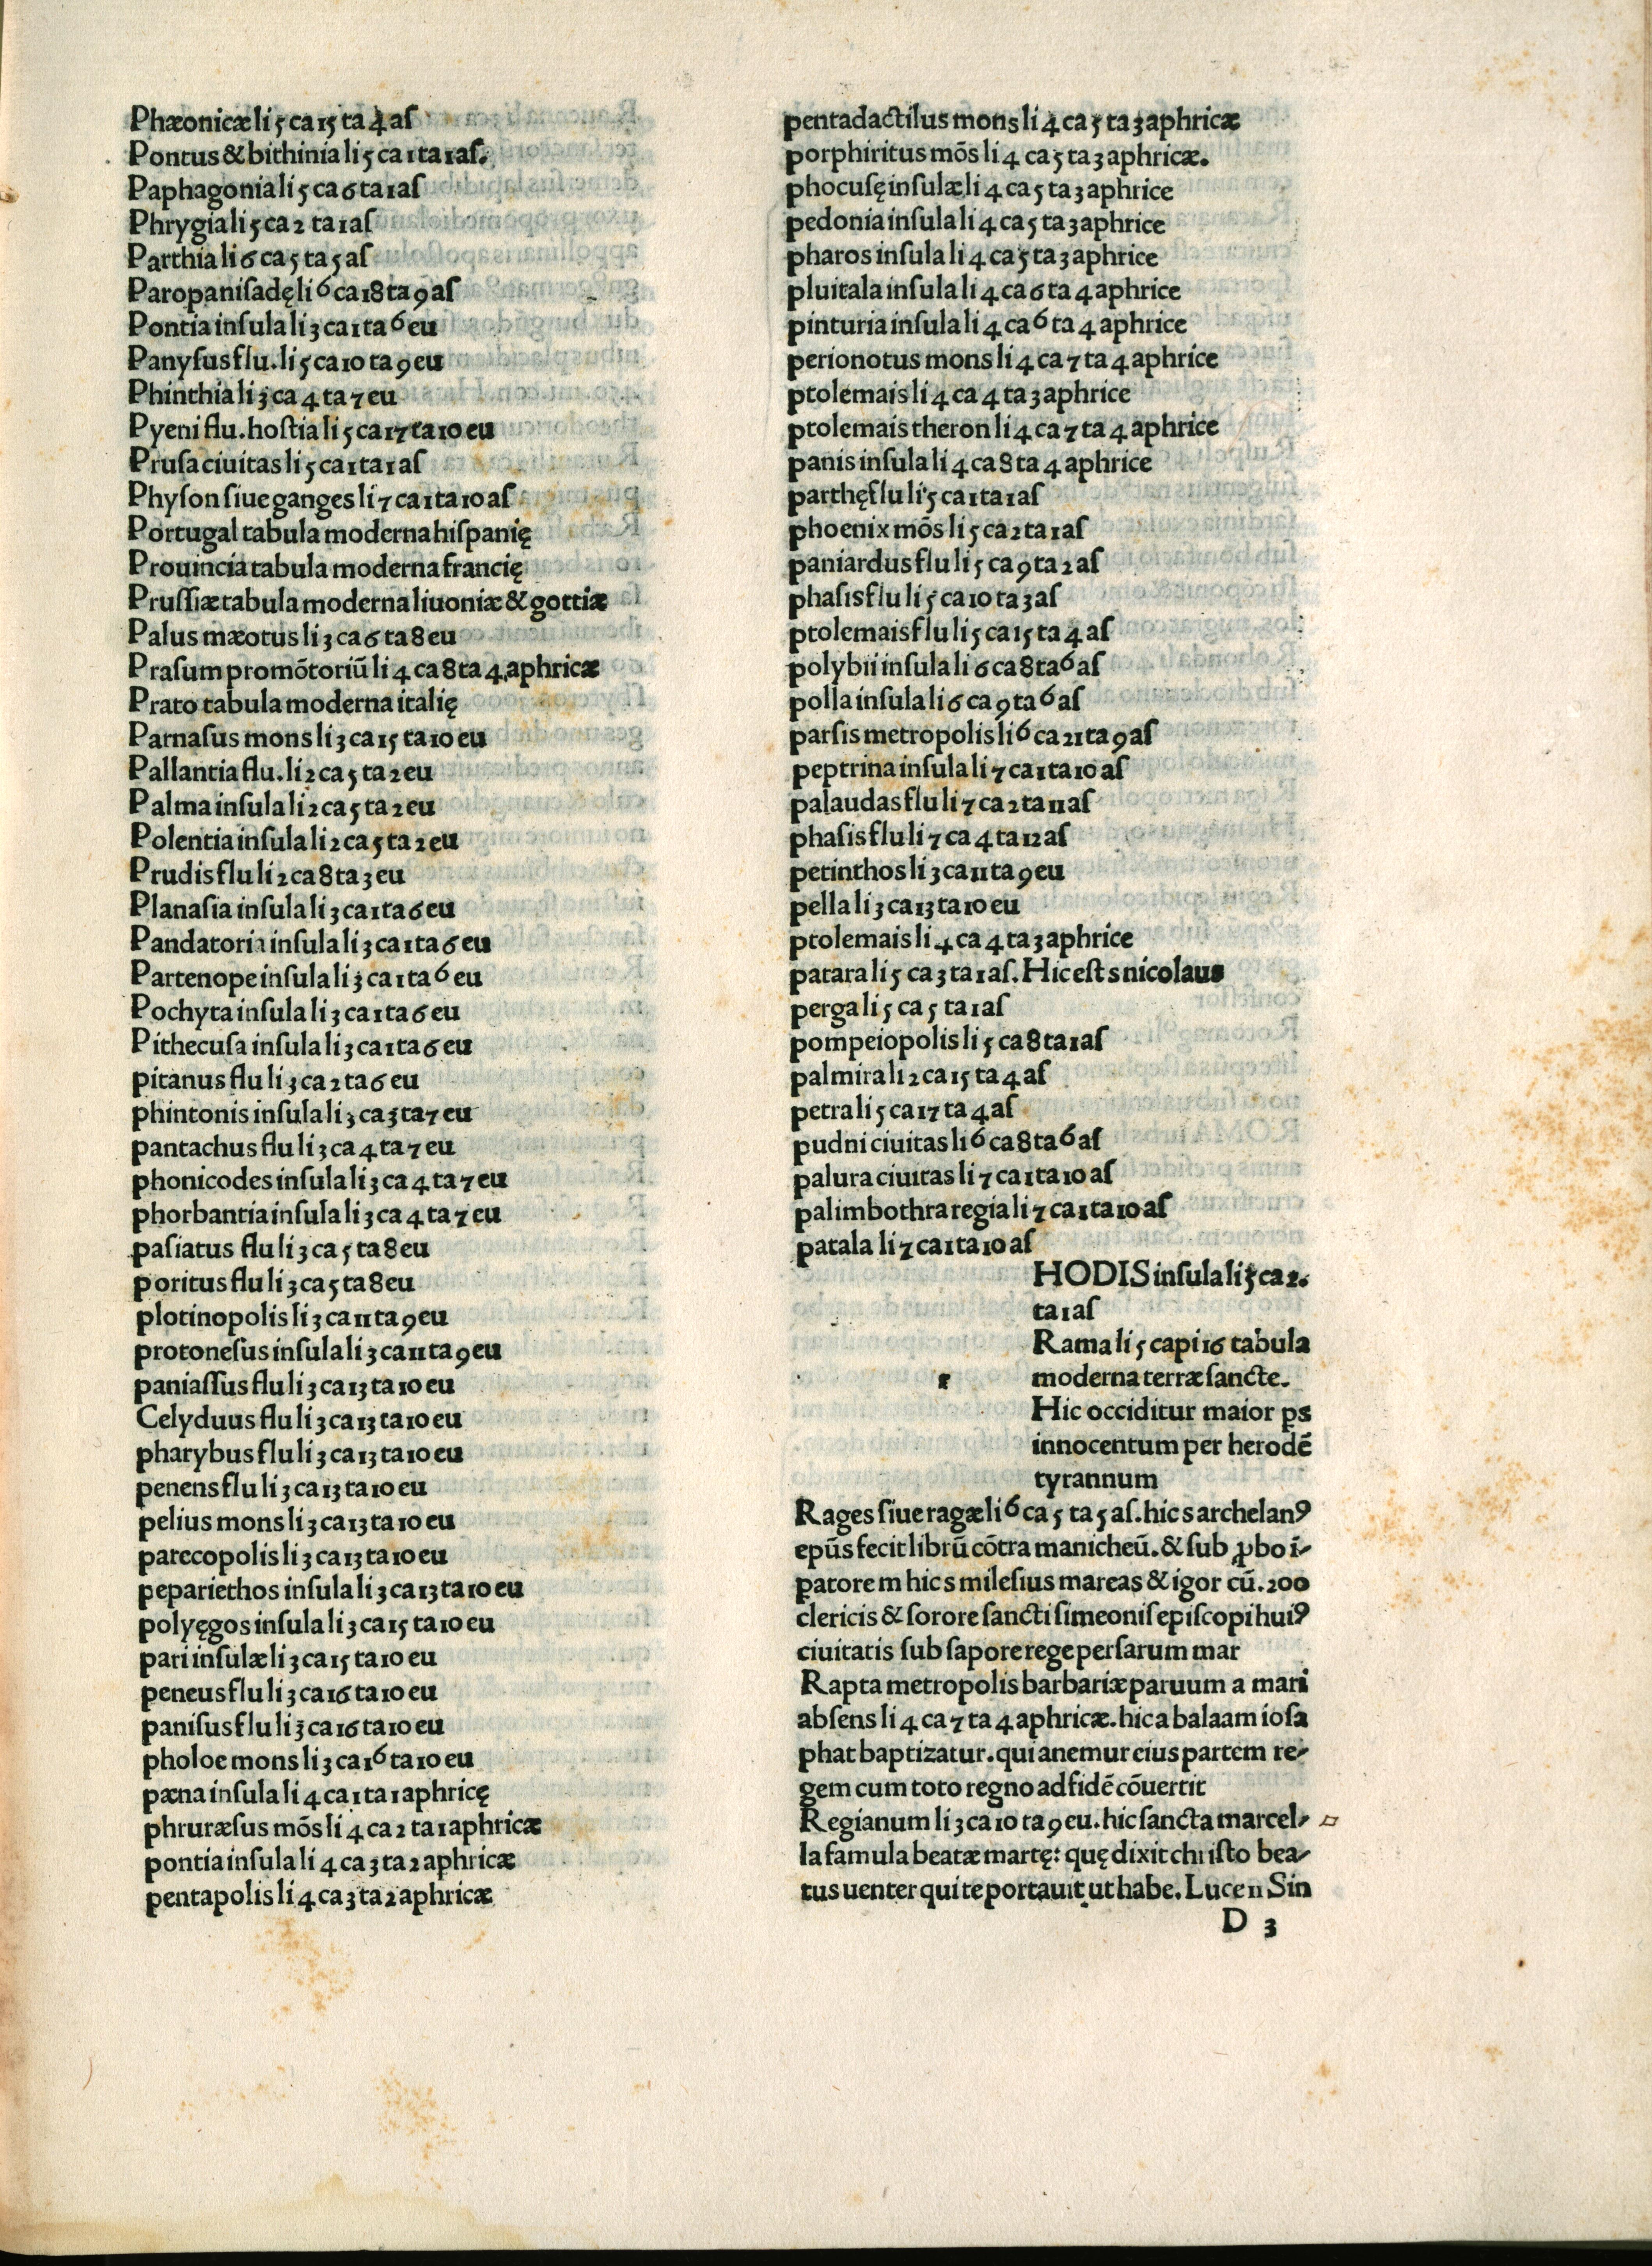 Phæonicæ li 5 ca 15 ta 4 aſ
Pontus & bithinia li 5 ca 1 ta 1 aſ.
Paphagonia li 5 ca 6 ta 1 aſ
Phrygia li 5 ca 2 ta 1 aſ
Parthia li 6 ca 5 ta 5 aſ
Paropaniſadę li 6 ca 18 ta 9 aſ
Pontia inſula li 3 ca 1 ta 6 eu
Panyſus flu. li 5 ca 10 ta 9 eu
Phinthia li 3 ca 4 ta 7 eu
Pyeni flu. hoſtia li 5 ca 17 ta 10 eu
Pruſa ciuitas li 5 ca 1 ta 1 aſ
Phyſon ſiue ganges li 7 ca 1 ta 10 aſ
Portugal tabula moderna hiſpanię
Prouincia tabula moderna francię
Pruſſiæ tabula moderna liuoniæ & gottiæ
Palus mæotus li 3 ca 6 ta 8 eu
Praſum promõtoriũ li 4 ca 8 ta 4 aphricæ
Prato tabula moderna italię
Parnaſus mons li 3 ca 15 ta 10 eu
Pallantia flu. li 2 ca 5 ta 2 eu
Palma inſula li 2 ca 5 ta 2 eu
Polentia inſula li 2 ca 5 ta 2 eu
Prudis flu li 2 ca 8 ta 3 eu
Planaſia inſula li 3 ca 1 ta 6 eu
Pandatoria inſula li 3 ca 1 ta 6 eu
Partenope inſula li 3 ca 1 ta 6 eu
Pochyta inſula li 3 ca 1 ta 6 eu
Pithecuſa inſula li 3 ca 1 ta 6 eu
pitanus flu li 3 ca 2 ta 6 eu
phintonis inſula li 3 ca 3 ta 7 eu
pantachus flu li 3 ca 4 ta 7 eu
phonicodes inſula li 3 ca 4 ta 7 eu
phorbantia inſula li 3 ca 4 ta 7 eu
paſiatus flu li 3 ca 5 ta 8 eu
poritus flu li 3 ca 5 ta 8 eu
plotinopolis li 3 ca 11 ta 9 eu
protoneſus inſula li 3 ca 11 ta 9 eu
paniaſſus flu li 3 ca 13 ta 10 eu
Celyduus flu li 3 ca 13 ta 10 eu
pharybus flu li 3 ca 13 ta 10 eu
penens flu li 3 ca 13 ta 10 eu
pelius mons li 3 ca 13 ta 10 eu
parecopolis li 3 ca 13 ta 10 eu
pepariethos inſula li 3 ca 13 ta 10 eu
polyęgos inſula li 3 ca 15 ta 10 eu
pari inſulæ li 3 ca 15 ta 10 eu
peneus flu li 3 ca 16 ta 10 eu
paniſus flu li 3 ca 16 ta 10 eu
pholoe mons li 3 ca 16 ta 10 eu
pæna inſula li 4 ca 1 ta 1 aphricę
phruræſus mõs li 4 ca 2 ta 1 aphricæ
pontia inſula li 4 ca 3 ta 2 aphricæ
pentapolis li 4 ca 3 ta 2 aphricæ
pentadactilus mons li 4 ca 5 ta 3 aphricæ
porphiritus mõs li 4 ca 5 ta 3 aphricæ.
phocuſę inſulæ li 4 ca 5 ta 3 aphrice
pedonia inſula li 4 ca 5 ta 3 aphrice
pharos inſula li 4 ca 5 ta 3 aphrice
pluitala inſula li 4 ca 6 ta 4 aphrice
pinturia inſula li 4 ca 6 ta 4 aphrice
perionotus mons li 4 ca 7 ta 4 aphrice
ptolemais li 4 ca 4 ta 3 aphrice
ptolemais theron li 4 ca 7 ta 4 aphrice
panis inſula li 4 ca 8 ta 4 aphrice
parthę flu li 5 ca 1 ta 1 aſ
phoenix mõs li 5 ca 2 ta 1 aſ
paniardus flu li 5 ca 9 ta 2 aſ
phaſis flu li 5 ca 10 ta 3 aſ
ptolemais flu li 5 ca 15 ta 4 aſ
polybii inſula li 6 ca 8 ta 6 aſ
polla inſula li 6 ca 9 ta 6 aſ
parſis metropolis li 6 ca 21 ta 9 aſ
peptrina inſula li 7 ca 1 ta 10 aſ
palaudas flu li 7 ca 2 ta 11 aſ
phaſis flu li 7 ca 4 ta 12 aſ
petinthos li 3 ca 11 ta 9 eu
pella li 3 ca 13 ta 10 eu
ptolemais li 4 ca 4 ta 3 aphrice
patara li 5 ca 3 ta 1 aſ. Hic eſt s nicolaus
perga li 5 ca 5 ta 1 aſ
pompeiopolis li 5 ca 8 ta 1 aſ
palmira li 2 ca 15 ta 4 aſ
petra li 5 ca 17 ta 4 aſ
pudni ciuitas li 6 ca 8 ta 6 aſ
palura ciuitas li 7 ca 1 ta 10 aſ
palimbothra regia li 7 ca 1 ta 10 aſ
patala li 7 ca 1 ta 10 aſ
HODIS inſula li 5 ca 2.
ta 1 aſ
Rama li 5 capi 16 tabula
r moderna terræ ſancte.
Hic occiditur maior ꝑs
innocentum per herodẽ
tyrannum
Rages ſiue ragæ li 6 ca 5 ta 5 aſ. hic s archelanꝰ
epũs fecit librũ cõtra manicheũ. & ſub ꝓbo ĩ-
ꝑatore m hic s mileſius mareas & igor cũ. 200
clericis & ſorore ſancti ſimeonis epiſcopi huiꝰ
ciuitatis ſub ſapore rege perſarum mar
Rapta metropolis barbariæ paruum a mari
abſens li 4 ca 7 ta 4 aphricæ. hic a balaam ioſa
phat baptizatur. qui anemur eius partem re-
gem cum toto regno ad fidẽ cõuertit
Regianum li 3 ca 10 ta 9 eu. hic ſancta marcel-
la famula beatæ martę: quę dixit chriſto bea-
tus uenter qui te portauit ut habe. Luce 11 Sin
D 3